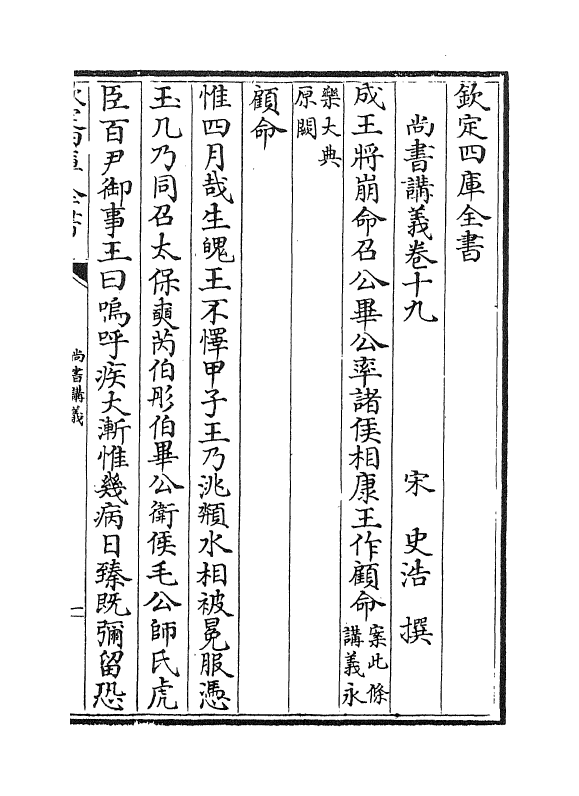 欽定四庫全書
尚書講義卷十九
宋 史浩 撰
成王將崩命召公畢公率諸侯相康王作顧命案此條
講義永
樂大典
原闕
顧命
惟四月哉生魄王不懌甲子王乃洮頮水相被冕服憑
玉几乃同召太保奭芮伯彤伯畢公衛侯毛公師氏虎
臣百尹御事王曰嗚呼疾大漸惟幾病日臻既彌留恐
欽定四庫全書
尚書講義
一